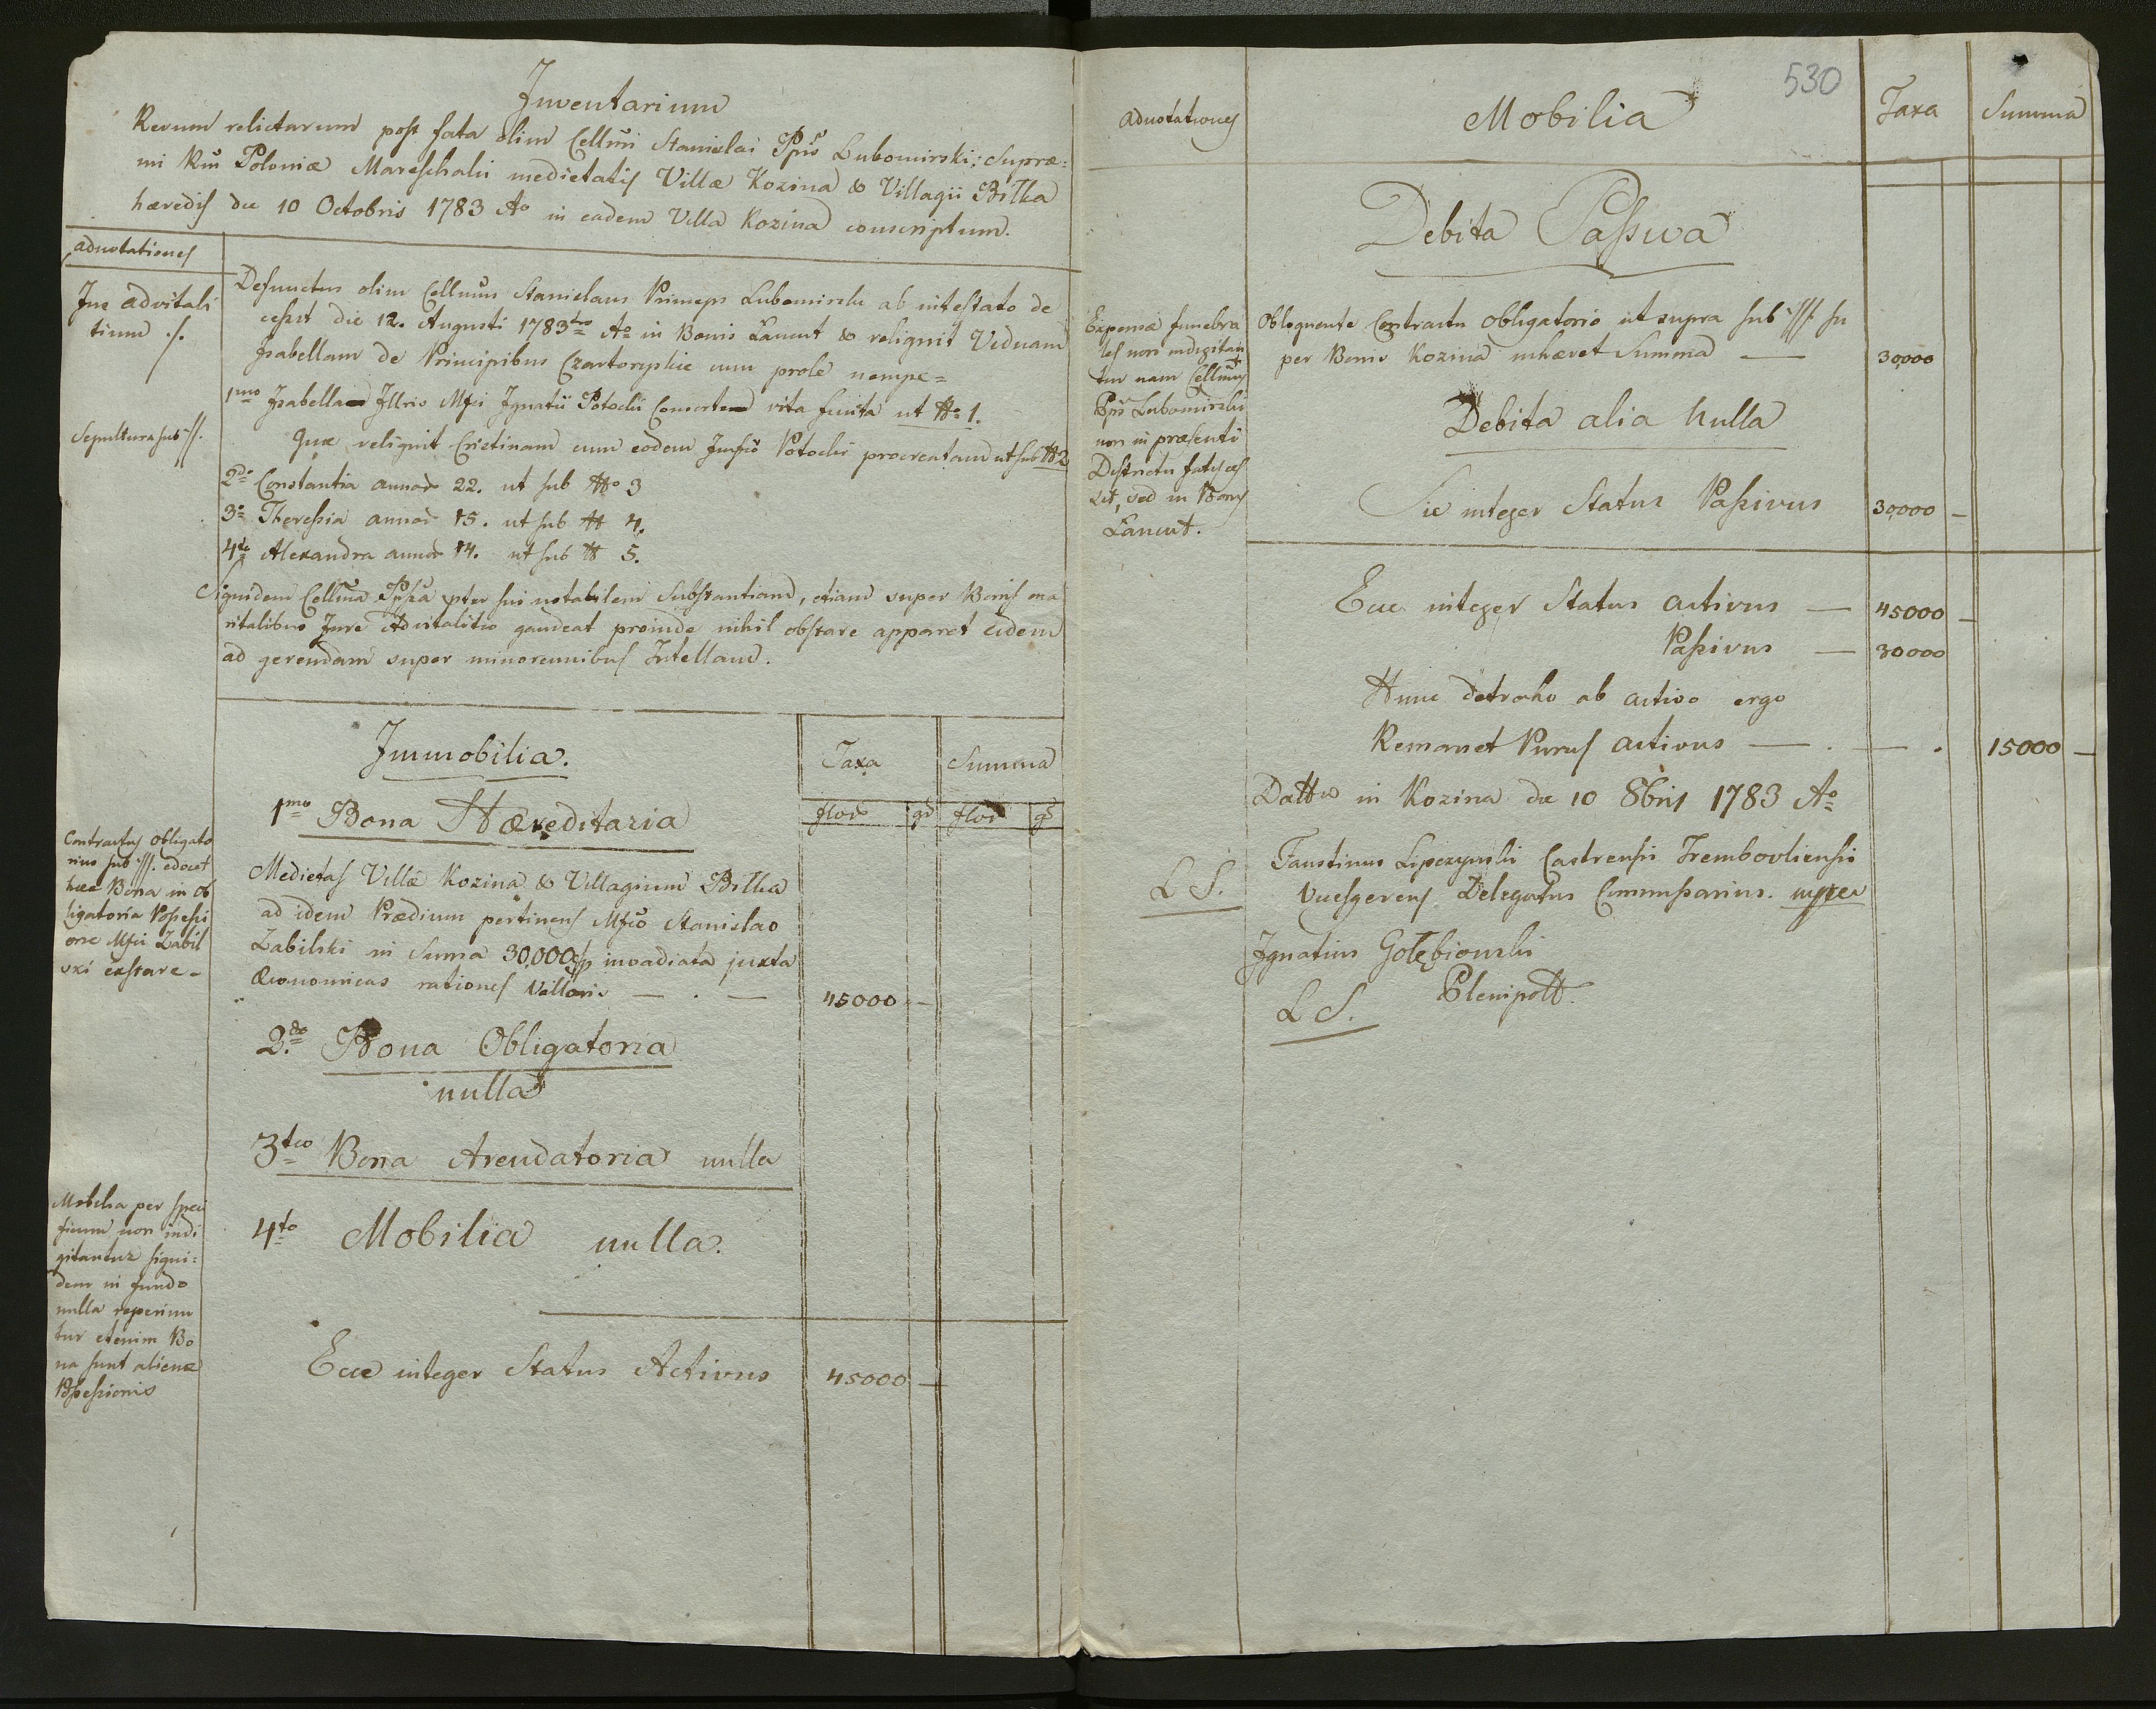 Inventarium
Rerum relictarum post fata olim Cellmi Stanislai Ppis Lubomirski: Supræ=
mi Rni Poloniæ Mareschalii medietatis Villæ Kozina & Villagii Bilka
hæredis die 10 Octobris 1783 Ao in eadem Villa Kozina conscriptum.
adnotationes
Jus advitali
tium ·/·
Sepultura sub //.
Defunctus olim Cellmus Stanislaus Princeps Lubomirski ab intestato de
cessit die 12. Augusti 1783tio Ao in Bonis Łancut & reliquit Viduam
Isabellam de Principibus Czartoryskie cum prole nempe=
1mo Isabella Illris Mfci Ignatii Potocki Consorte vita functa ut No 1.
Quæ reliquit Cristinam cum eodem Potocki procreatam ut sub N 2
2do Constantia annor 22. ut sub No 3
3o Theressia annor 15. ut sub N 4.
4to Alexandra annor 14. ut sub N 5.
Siquidem Cellma Ppssa pter sui notabilem Substantiam, etiam super Bonis ma
ritalibus Jure Advitalitio gaudeat proinde nihil obstare apparet eidem
ad gerendam super minorennibus Tutellam.
Immobilia.
Taxa
Summa
1mo Bona Hæreditaria
flor gr flor gr
Contractus Obligato
rius sub ///. edocet
hæc Bona in ob
ligatoria Possessi
one Mfci Zabil
ski exstare -
Medietas Villæ Kozina & Villagium Bilka
ad idem Prædium pertinens Mfco Stanislao
Zabilski in Suma 30,000 fp invadiata juxta
Œconomicas rationes Valloris — . — 45000 -
2do Bona Obligatoria
nulla
3tio Bona Arendatoria nulla
4to Mobilia nulla.
Mobilia per speci
ficum non indi
gitantur siqui=
dem in fundo
nulla reperiun
tur etenim Bo
na sunt alienæ
Possessionis
Ecce integer Status Activus 45000 -
530
adnotationes
Mobilia
Taxa
Summa
Debita Passiva
Expensæ funebra
les non indigitan
tur nam Cellmus
Pps Lubomirski
non in præsenti
Districtu fatis ces
sit, sed in Bonis
Łancut.
Obloquente Contractu Obligatorio ut supra sub ///. su
per Bonis Kozina inhæret Summa — 30,000
Debita alia Nulla
Sic integer Status Passivus 30,000 -
Ecce integer Status activus — 45000 -
Passivus — 30000
Hunc detraho ab activo ergo
Remanet Purus activus — . — . 15000 -
Datt in Kozina die 10 8bris 1783 Ao
L S.
Faustinus Lipczynski Castrensis Trembovliensis
Vicesgerens Delegatus Commissarius. mpp
Ignatius Gołębiowski
L S. Plenipott.